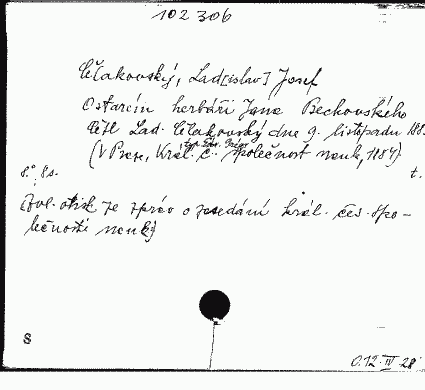 102 306
Čelakovský, Lad[islav] Josef
O starém herbáři Jana Beckovského
Četl Lad. Čelakovský dne 9. listopadu 188
(V Praze, Král. č. společnost nauk, 1884)
8°, 8 s. t.
(Zvl. otisk ze zpráv o zasedání král. čes. spo-
lečnosti nauk)
S
O.12.IV.28